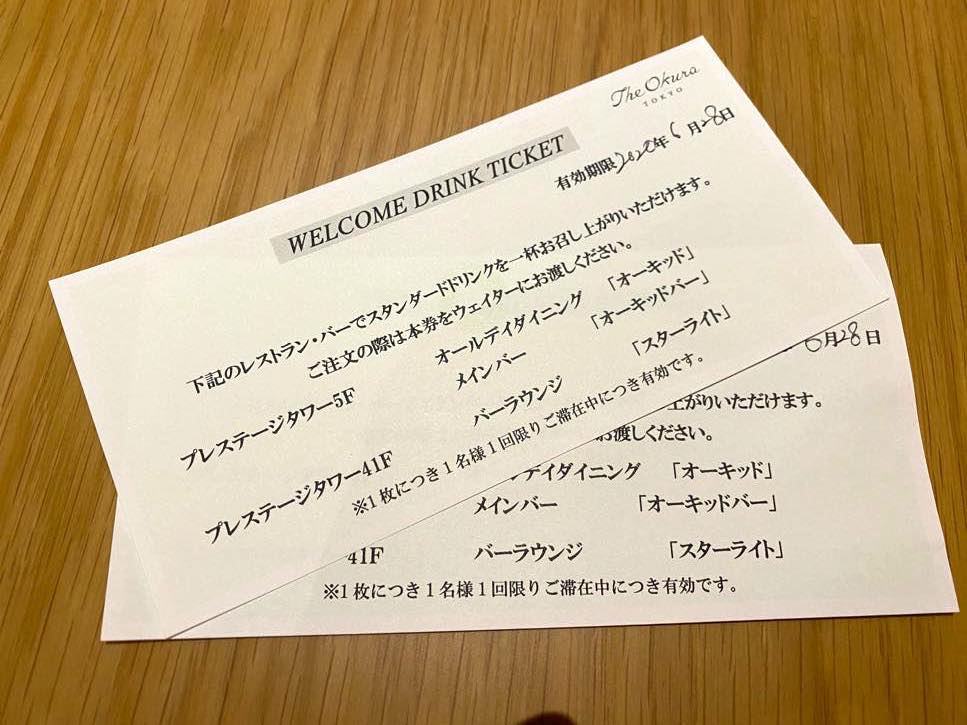 The Okura
TOKYO
WELCOME DRINK TICKET
有効期限2020年6月28日
下記のレストラン・バーでスタンダードドリンクを一杯お召し上がりいただけます。
ご注文の際は本券をウェイターにお渡しください。
プレステージタワー5F オールデイダイニング 「オーキッド」
メインバー 「オーキッドバー」
プレステージタワー41F バーラウンジ 「スターライト」
※1枚につき1名様1回限りご滞在中につき有効です。
6月28日
上がりいただけます。
お渡しください。
デイダイニング 「オーキッド」
メインバー 「オーキッドバー」
41F バーラウンジ 「スターライト」
※1枚につき1名様1回限りご滞在中につき有効です。